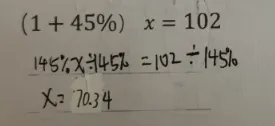 (1 + 45%) x = 102
145%x÷145% = 102÷145%
x = 70.34